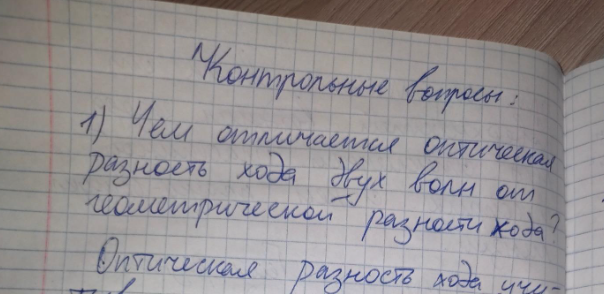 Контрольные вопросы:
1) Чем отличается оптическая
разность хода двух волн от
геометрической разности хода?
Оптическая разность хода учи-